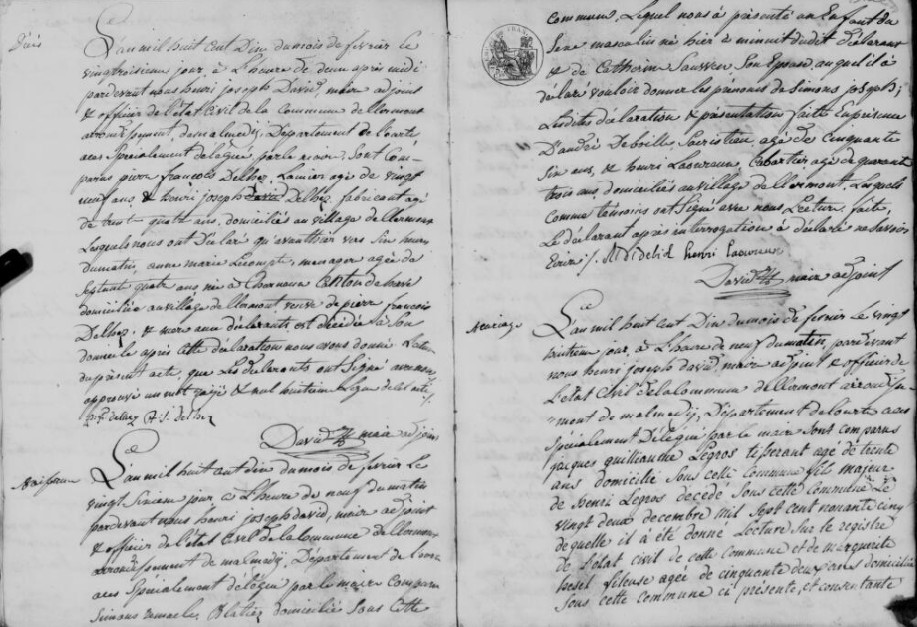 Décès
L'an mil huit cent Dix du mois de fevrier le
vingtroisieme jour, à L'heure de deux après midi
pardevant nous henri joseph David, maire adjoint
& officier de l'état Civil de la Commune de Clermont
arrondissement de malmedÿ, Département de l'ourte
aces Spécialement délégué par le maire. Sont Com-
parus pierre francois Delhez, Lainier agé de vingt
neuf ans, & henri joseph Delhez, fabricant agé
de trent quatt ans, domiciliés au village de Clermont
Lesquels nous ont Déclaré qu'avanthier vers Six heures
du matin, anne marie Lecompte menager agée de
septante quatr ans née à Charneux Canton de herve
domiciliée au village de Clermont, veuve de pierre francois
Delhez, & mere aux déclarants, est décédée à Son
domicile après cette déclaration nous avons donné Lecture
du présent acte, que Les déclarants ont Signé avec nous
approuvé un mot rayé & nul huitieme Ligne de cet acte
p. f. delhez h. j. delhez
David maire adjoint
Naissance
L'an mil huit cent dix du mois de fevrier le
vingt Sixieme jour à L'heure de neuf du matin
pardevant nous henri joseph david, maire adjoint
& officier de l'état Civil de la Commune de Clermont
arrondissement de malmedÿ, Département de l'ourte
aces Spécialement délégué par le maire Comparu
Simons domicilié Sous Cette
commune, Lequel nous à présenté un Enfant du
Sexe masculin né hier à minuit dudit déclarant
& de Catherine Son Epouse, auquel il à
déclaré vouloir donner les prénoms de Simons joseph;
Lesdites déclaration & présentation faite En présence
D'andré Deboille, Sacristien, agé de Cinquante
Six ans, & henri Laovreux, Cabartier agé de quarant
trois ans, domiciliés au village de Clermont, Lesquels
Comme témoins ont Signé avec nous Lecture faite,
Le déclarant après interrogation à déclaré ne Savoir
Ecrire /. henri Laovreux
David maire adjoint
Mariage
L'an mil huit cent Dix du mois de fevrier le vingt
huitieme jour, à L'heure de neuf du matin, pardevant
nous henri joseph david maire adjoint & officier de
L'état Civil de la Commune de Clermont arrondisse-
ment de malmedÿ, Département de l'ourte aces
Spécialement Délégué par le maire sont comparus
jacques guilliaume Legros tisserant agé de trente
ans domicilié Sous cette Commune fils majeur
de Henri Legros decédé Sous cette Commune Le
vingt deux decembre mil Sept cent novante cinq
dequelle il à été donné Lecture sur le registre
de L'état civil de cette commune et de marguerite
hesel fileuse agée de cinquante deux ans domiciliée
Sous cette commune ci présente, et consentante